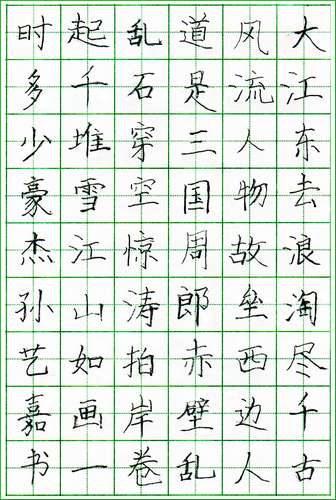 大江东去浪淘尽千古
风流人物故垒西边人
道是三国周郎赤壁乱
乱石穿空惊涛拍岸卷
起千堆雪江山如画一
时多少豪杰孙艺嘉书